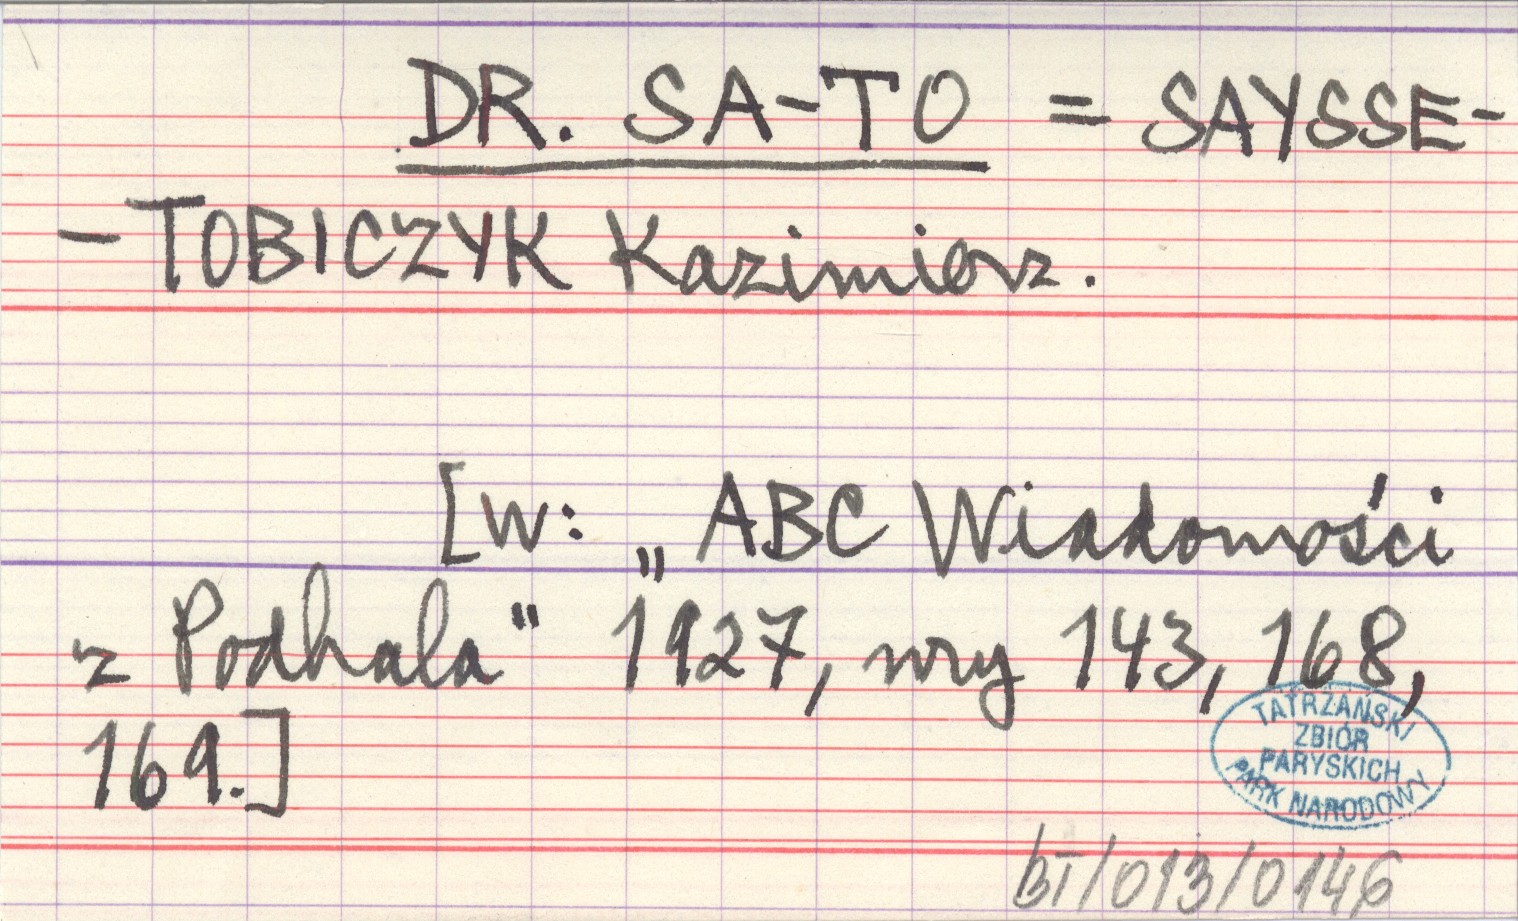 DR. SA-TO = SAYSSE-
-TOBICZYK Kazimierz.
[w: „ABC Wiadomości
z Podhala" 1927, nry 143, 168,
169.]
TATRZAŃSKI
ZBIÓR
PARYSKICH
PARK NARODOWY
bT/013/0146